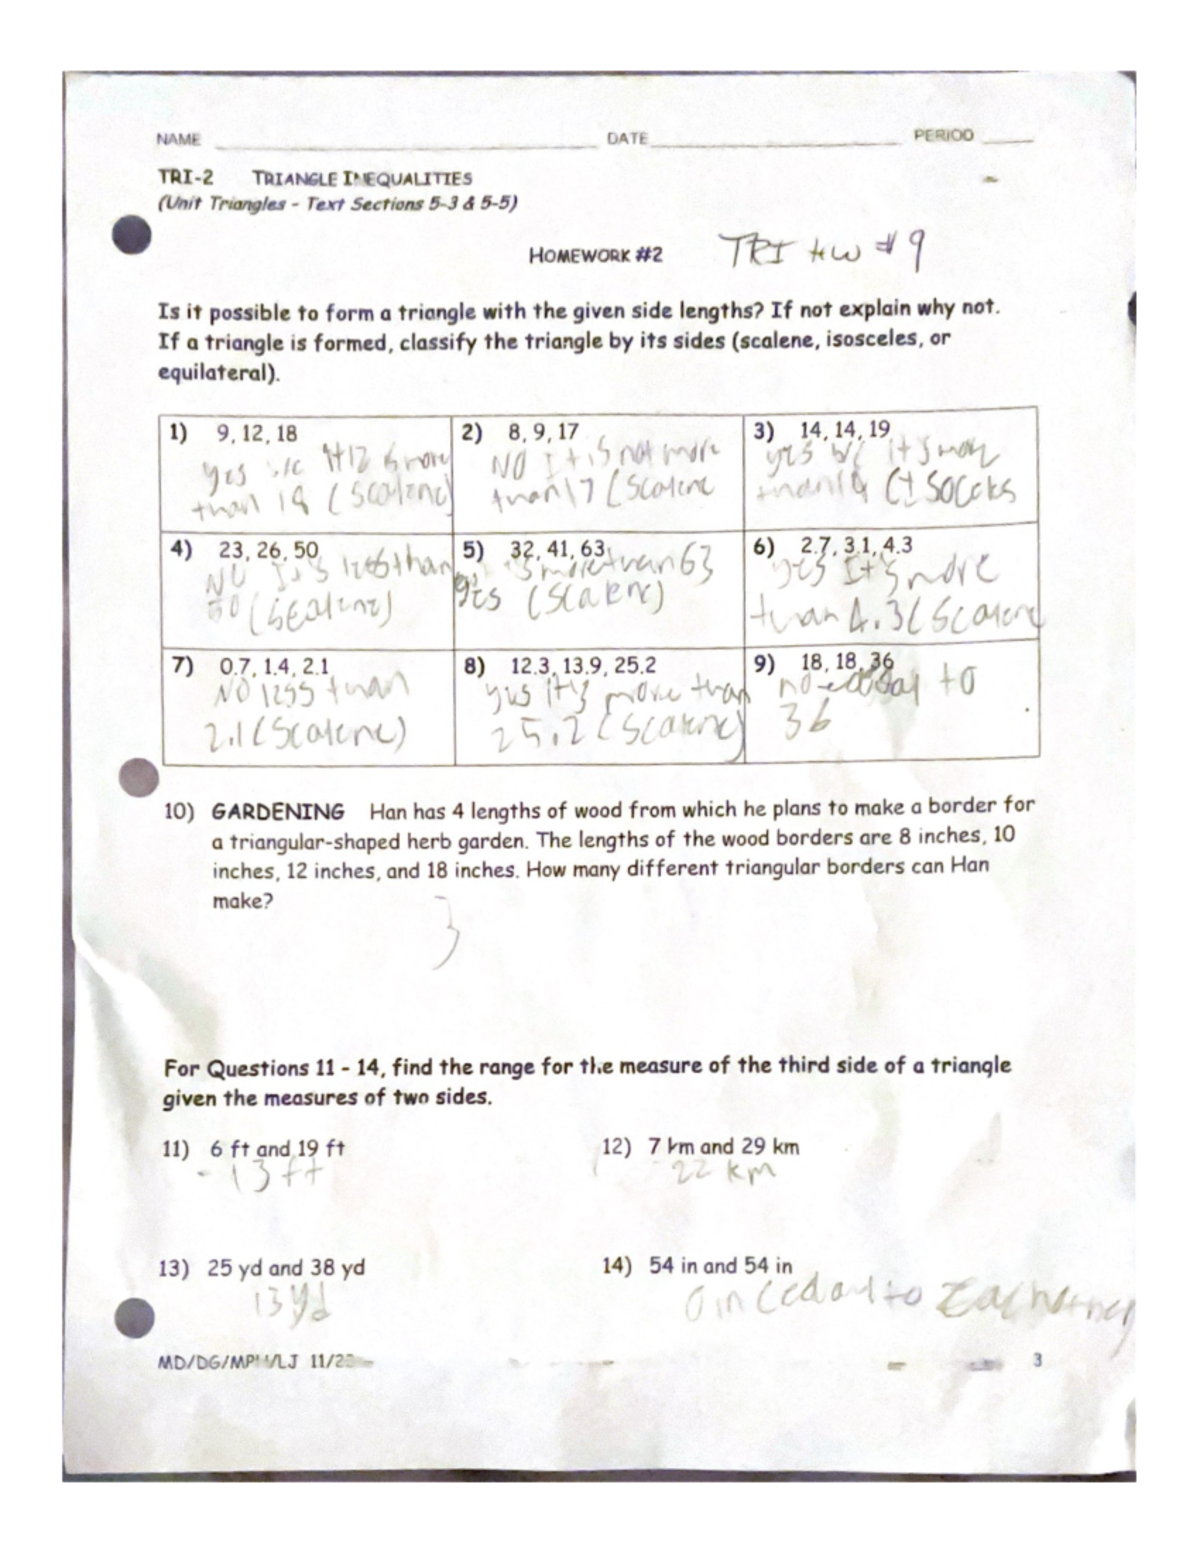 NAME DATE PERIOD
TRI-2 TRIANGLE INEQUALITIES
(Unit Triangles - Text Sections 5-3 & 5-5)
HOMEWORK #2 TRI HW #9
Is it possible to form a triangle with the given side lengths? If not explain why not.
If a triangle is formed, classify the triangle by its sides (scalene, isosceles, or
equilateral).
1) 9, 12, 18
yes b/c 9+12 is more
than 18 (Scalene)
2) 8, 9, 17
NO It is not more
than 17 (Scalene
3) 14, 14, 19
yes b/c it's more
than 19
4) 23, 26, 50
NO It's less than
50 (Scalene)
5) 32, 41, 63
is more than 63
yes (Scalene)
6) 2.7, 3.1, 4.3
yes It's more
than 4.3 (Scalene
7) 0.7, 1.4, 2.1
NO less than
2.1 (Scalene)
8) 12.3, 13.9, 25.2
yes it's more than
25.2 (Scalene)
9) 18, 18, 36
no equal to
36
10) GARDENING Han has 4 lengths of wood from which he plans to make a border for
a triangular-shaped herb garden. The lengths of the wood borders are 8 inches, 10
inches, 12 inches, and 18 inches. How many different triangular borders can Han
make?
3
For Questions 11 - 14, find the range for the measure of the third side of a triangle
given the measures of two sides.
11) 6 ft and 19 ft
- 13 ft
12) 7 km and 29 km
22 km
13) 25 yd and 38 yd
13 yd
14) 54 in and 54 in
0 in to
MD/DG/MP 11/23 3